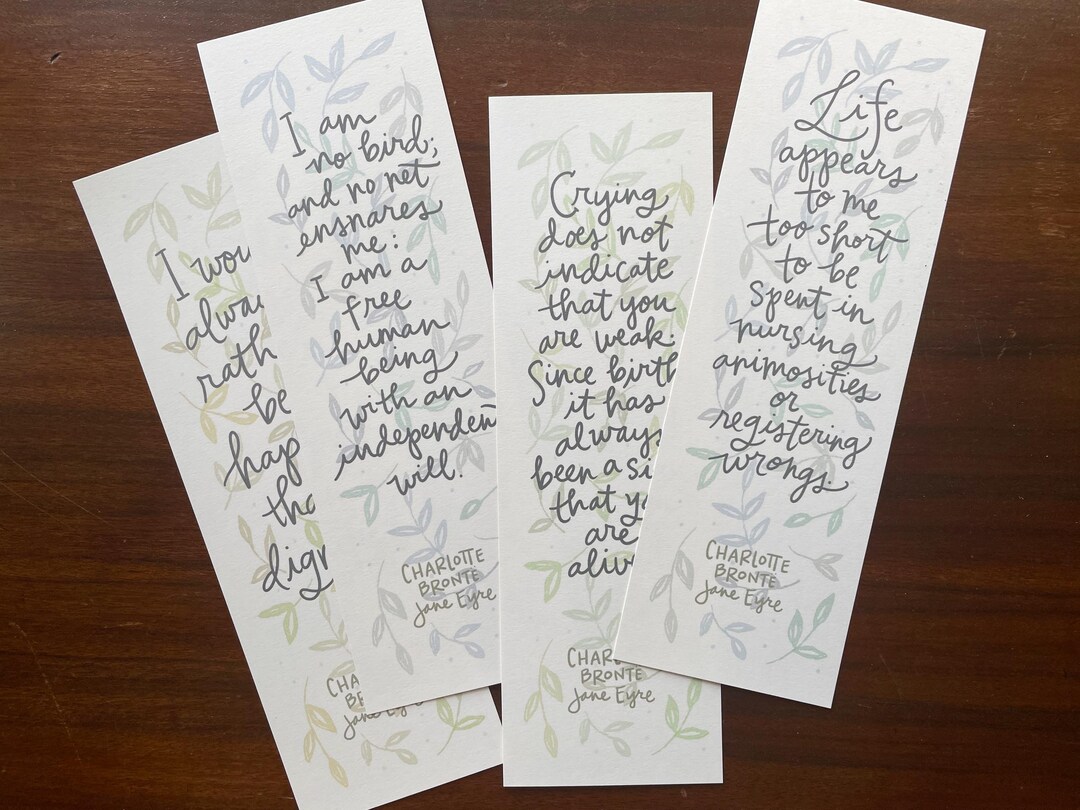 I wou
alwa
rath
be
hap
tha
dign
CHA
B
Jane Eyre
I am
no bird;
and no net
ensnares
me:
I am a
free
human
being
with an
independen
will.
CHARLOTTE
BRONTE
Jane Eyre
Crying
does not
indicate
that you
are weak.
Since birth
it has
always
been a si
that yo
are
aliv
CHAR
BRONTE
Jane Eyre
Life
appears
to me
too short
to be
spent in
nursing
animosities
or
registering
wrongs.
CHARLOTTE
BRONTE
Jane Eyre